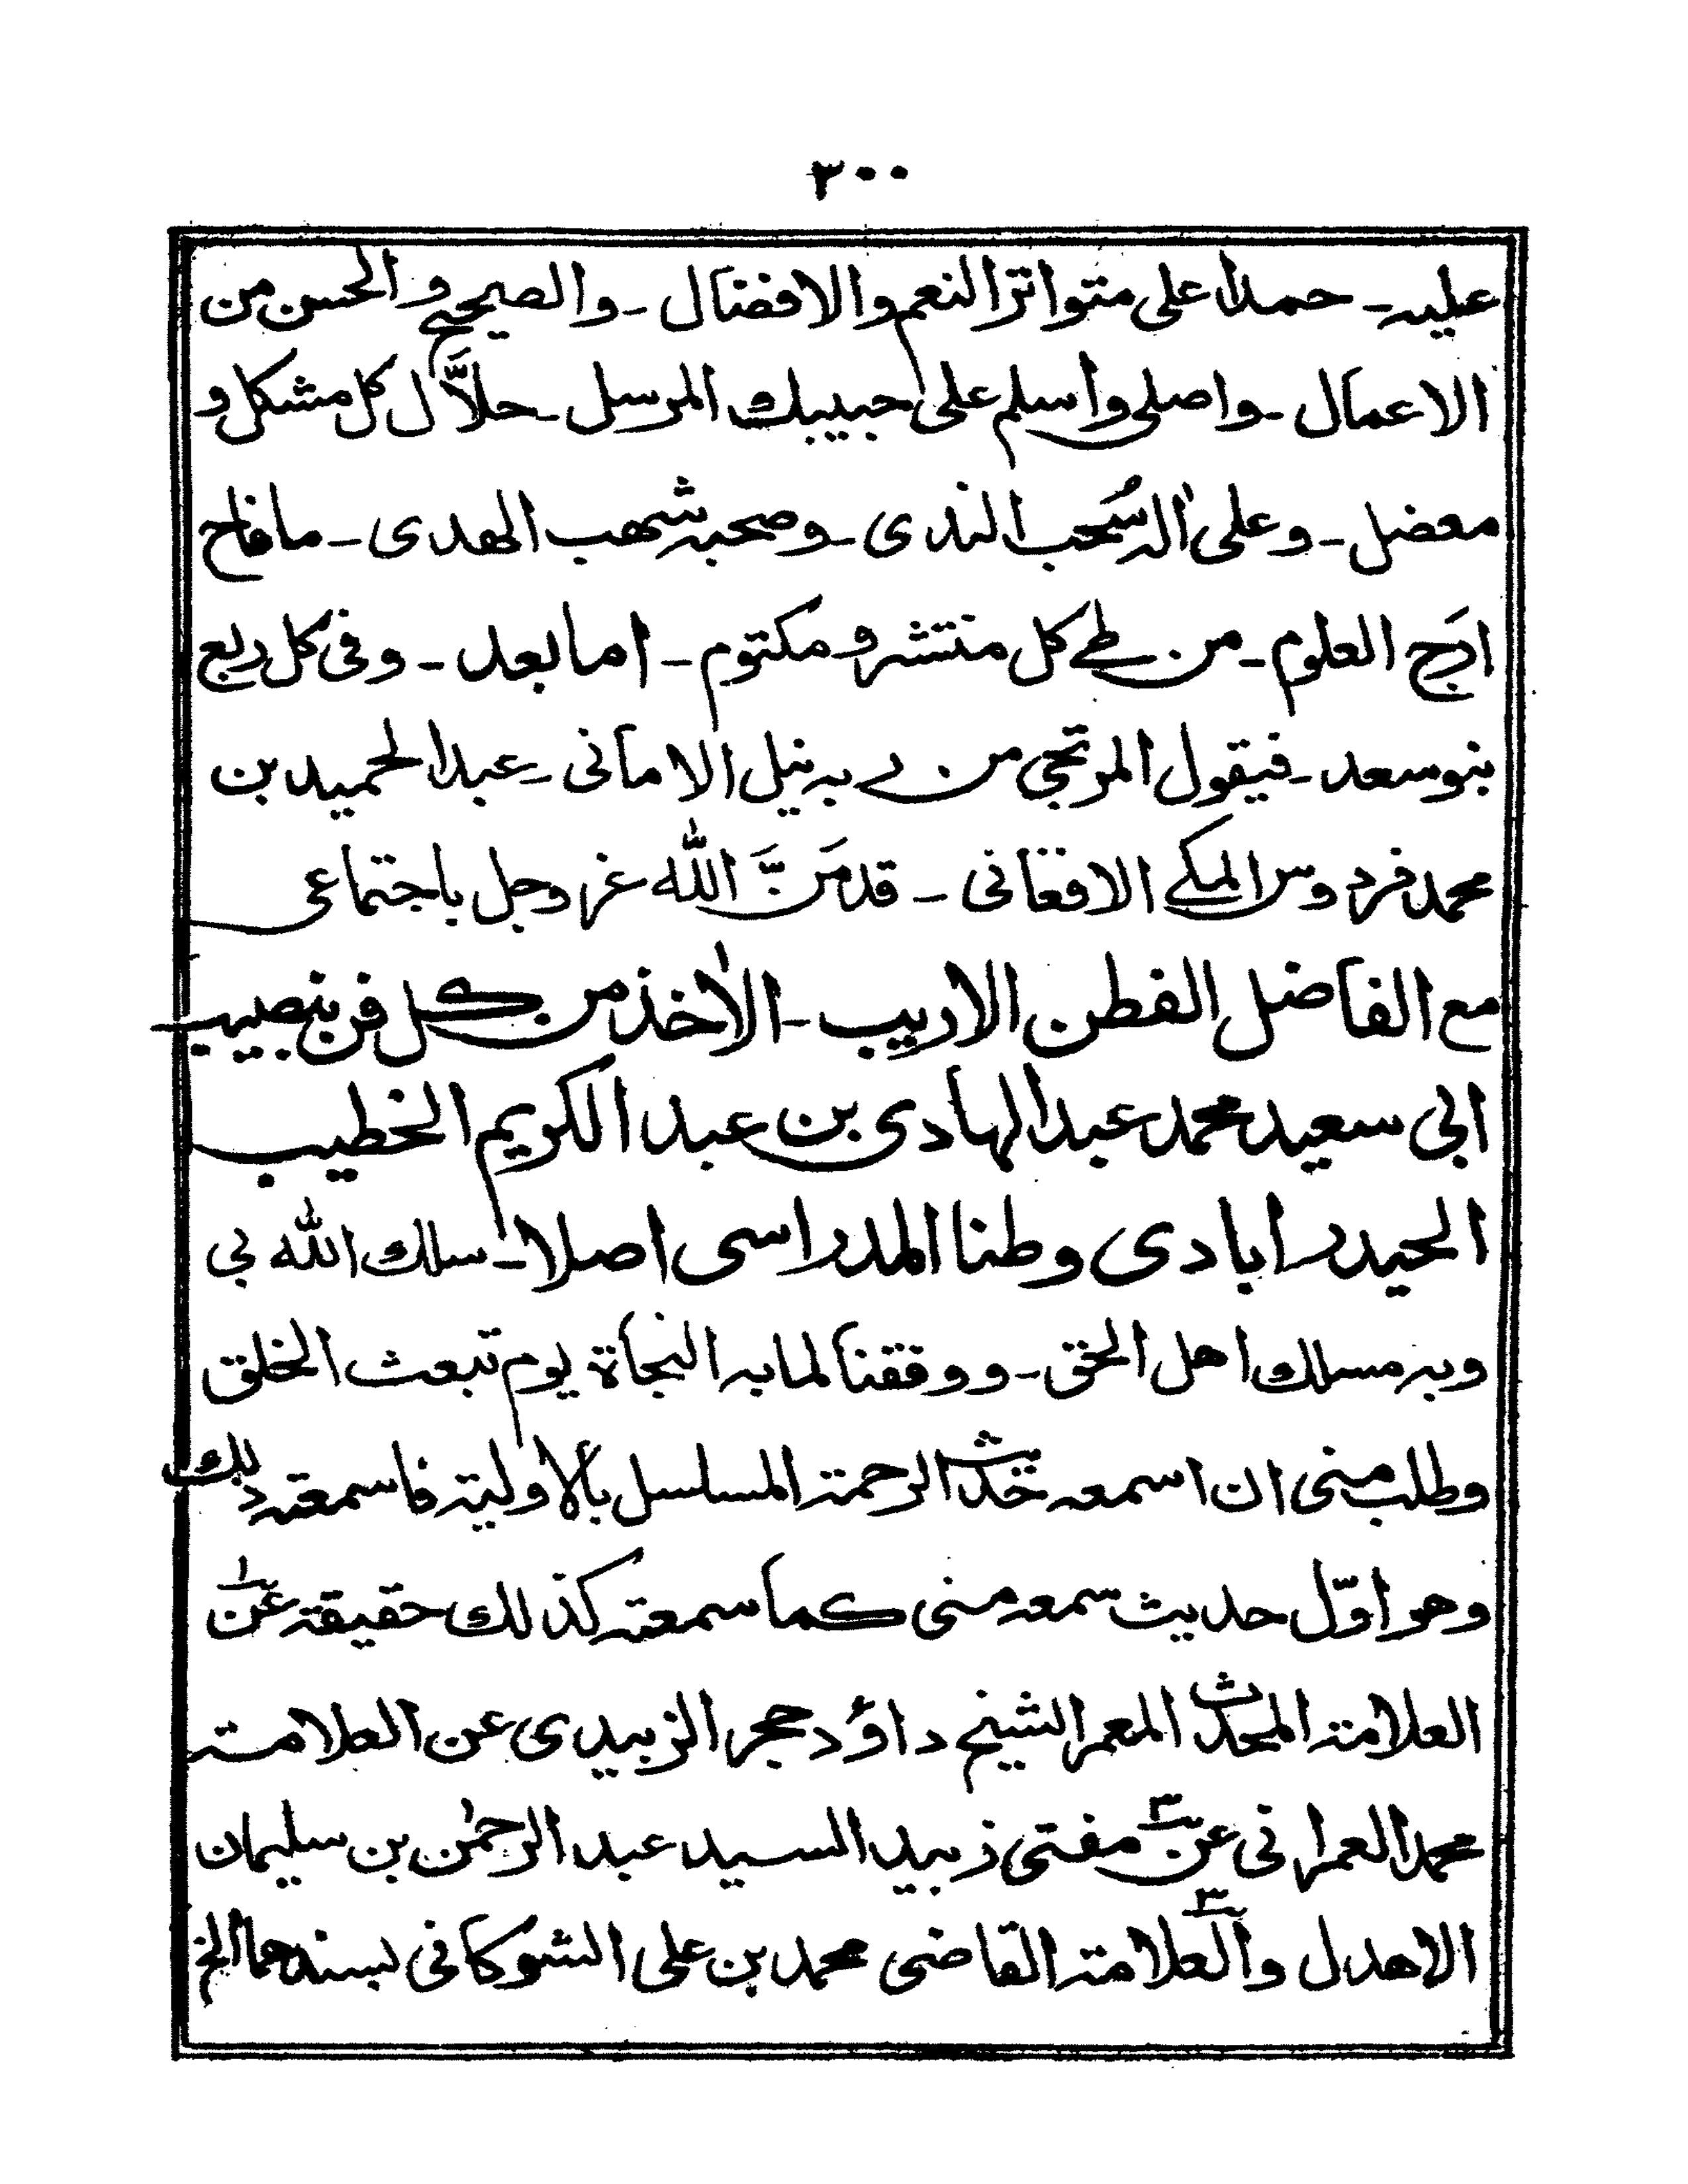 ٣٠٠
عليه ـ حمدا على متواتر النعم والافضال ـ والصيح و الحسن من
الاعمال ـ واصلي وأسلم على حبيبك المرسل ـ حلاَّل كل مشكل و
معضل ـ وعلى اٰله سُحب الندى ـ وصحبه شهب الهدى ـ ما فاح
ارَج العلوم ـ من طے كل منتشر و مكتوم ـ اما بعد ـ وفى كل ربع
بنو سعد ـ فيقول المرتجي من ربه نيل الامانى ـ عبد الحميد بن
محمد فردوس المكے الافغانى ـ قد مَنَّ الله عز وجل باجتماعى
مع الفاضل الفطن الاريب ـ الاٰخذ من كل فن بنصيب
ابى سعيد محمد عبد الهادى بن عبد الكريم الخطيب
الحيدر ابادى وطنا المدراسى اصلا ـ سلك الله بي
وبه مسلك اهل الحق ـ ووفقنا لما به النجاة يوم تبعث الخلق
وطلب منى ان اسمعه حديث الرحمة المسلسل بألاولية فاسمعته ذلك
وهو اوّل حديث سمعه منى كما سمعته كذلك حقيقة عن١
العلامة المحدث المعمر الشيخ داؤد حجر الزبيدى عن العلامة
محمد العمرانى عن٢ مفتى زبيد السيد عبد الرحمٰن بن سليمان
الاهدل و٣العلامة القاضى محمد بن على الشوكانى بسندهما الخ